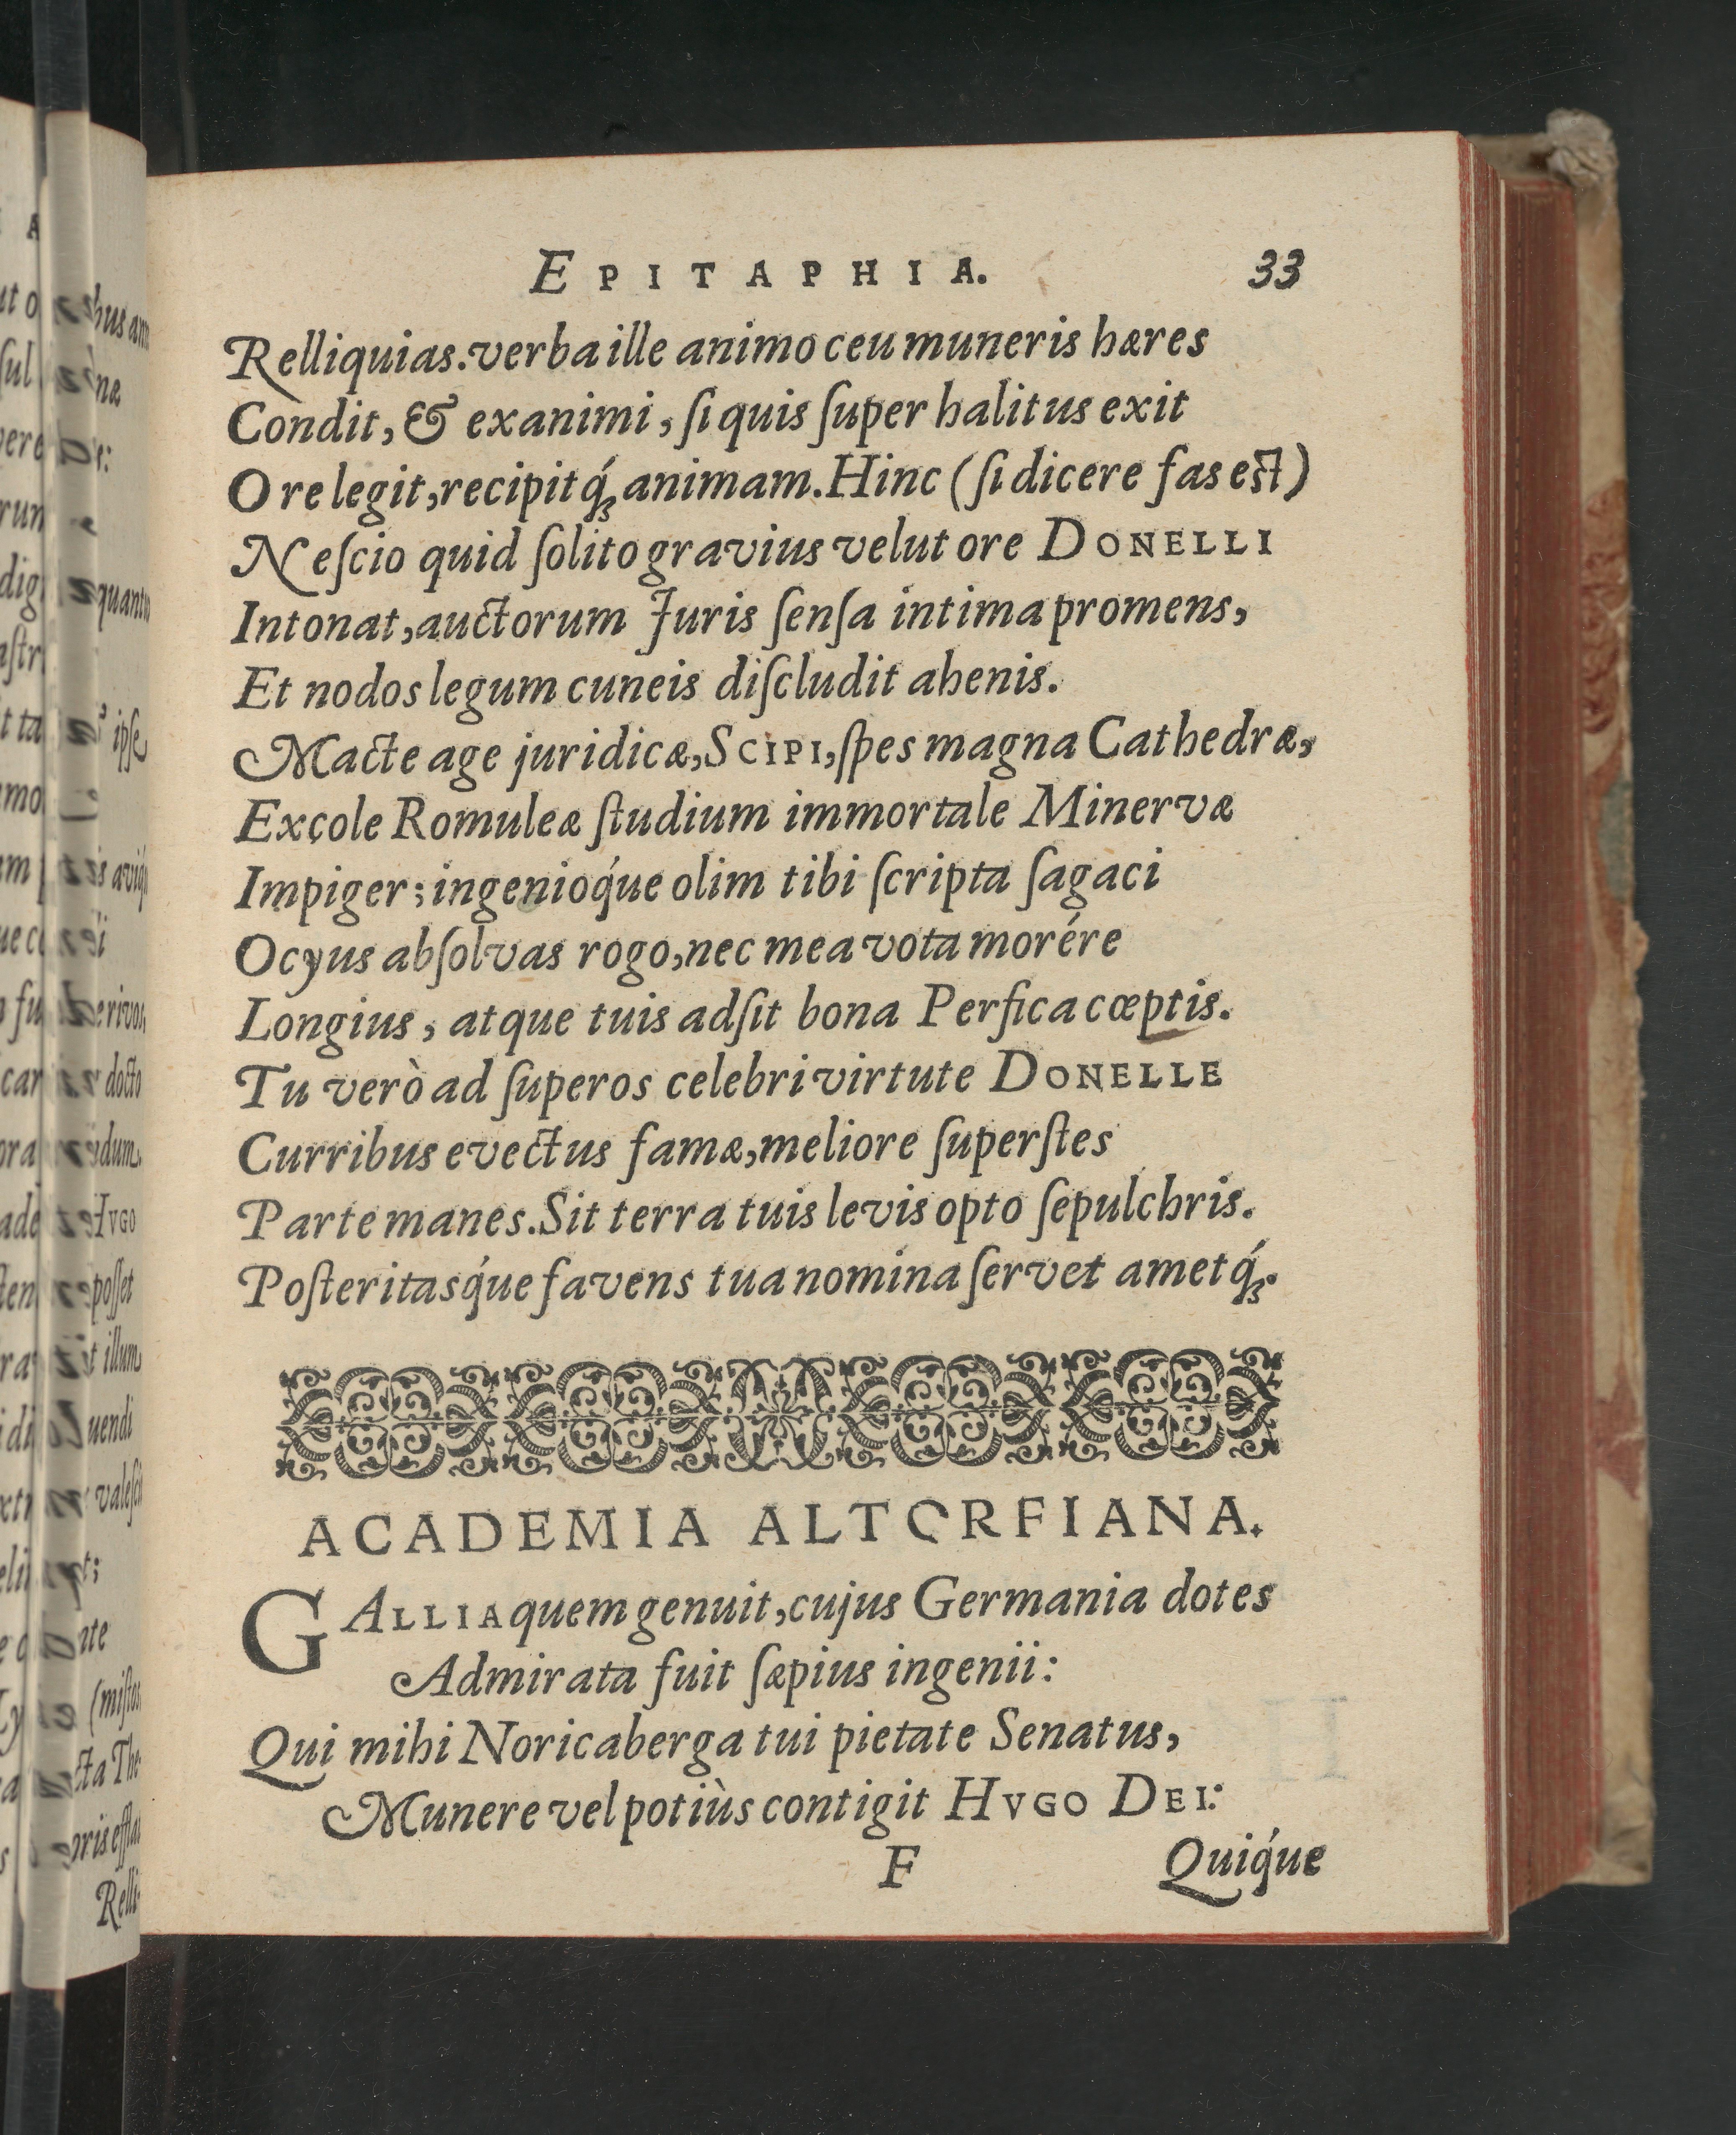 EPITAPHIA. 33
Relliquias. verba ille animo ceu muneris hæres
Condit, & exanimi, ſi quis ſuper halitus exit
Ore legit, recipitq́ꝫ animam. Hinc (ſi dicere fas est)
Neſcio quid ſolito gravius velut ore DONELLI
Intonat, auctorum Juris ſenſa intima promens,
Et nodos legum cuneis diſcludit ahenis.
Macte age juridicæ, SCIPI, ſpes magna Cathedræ,
Excole Romuleæ ſtudium immortale Minervæ
Impiger; ingenioq́ue olim tibi ſcripta ſagaci
Ocyus abſolvas rogo, nec mea vota morére
Longius, atque tuis adſit bona Perfica cœptis.
Tu verò ad ſuperos celebri virtute DONELLE
Curribus evectus famæ, meliore ſuperſtes
Parte manes. Sit terra tuis levis opto ſepulchris.
Poſteritasq́ue favens tua nomina ſervet ametq́ꝫ.
ACADEMIA ALTORFIANA.
GALLIA quem genuit, cujus Germania dotes
Admirata fuit ſæpius ingenii:
Qui mihi Noricaberga tui pietate Senatus,
Munere vel potiùs contigit HVGO DEI:
F Quiq́ue